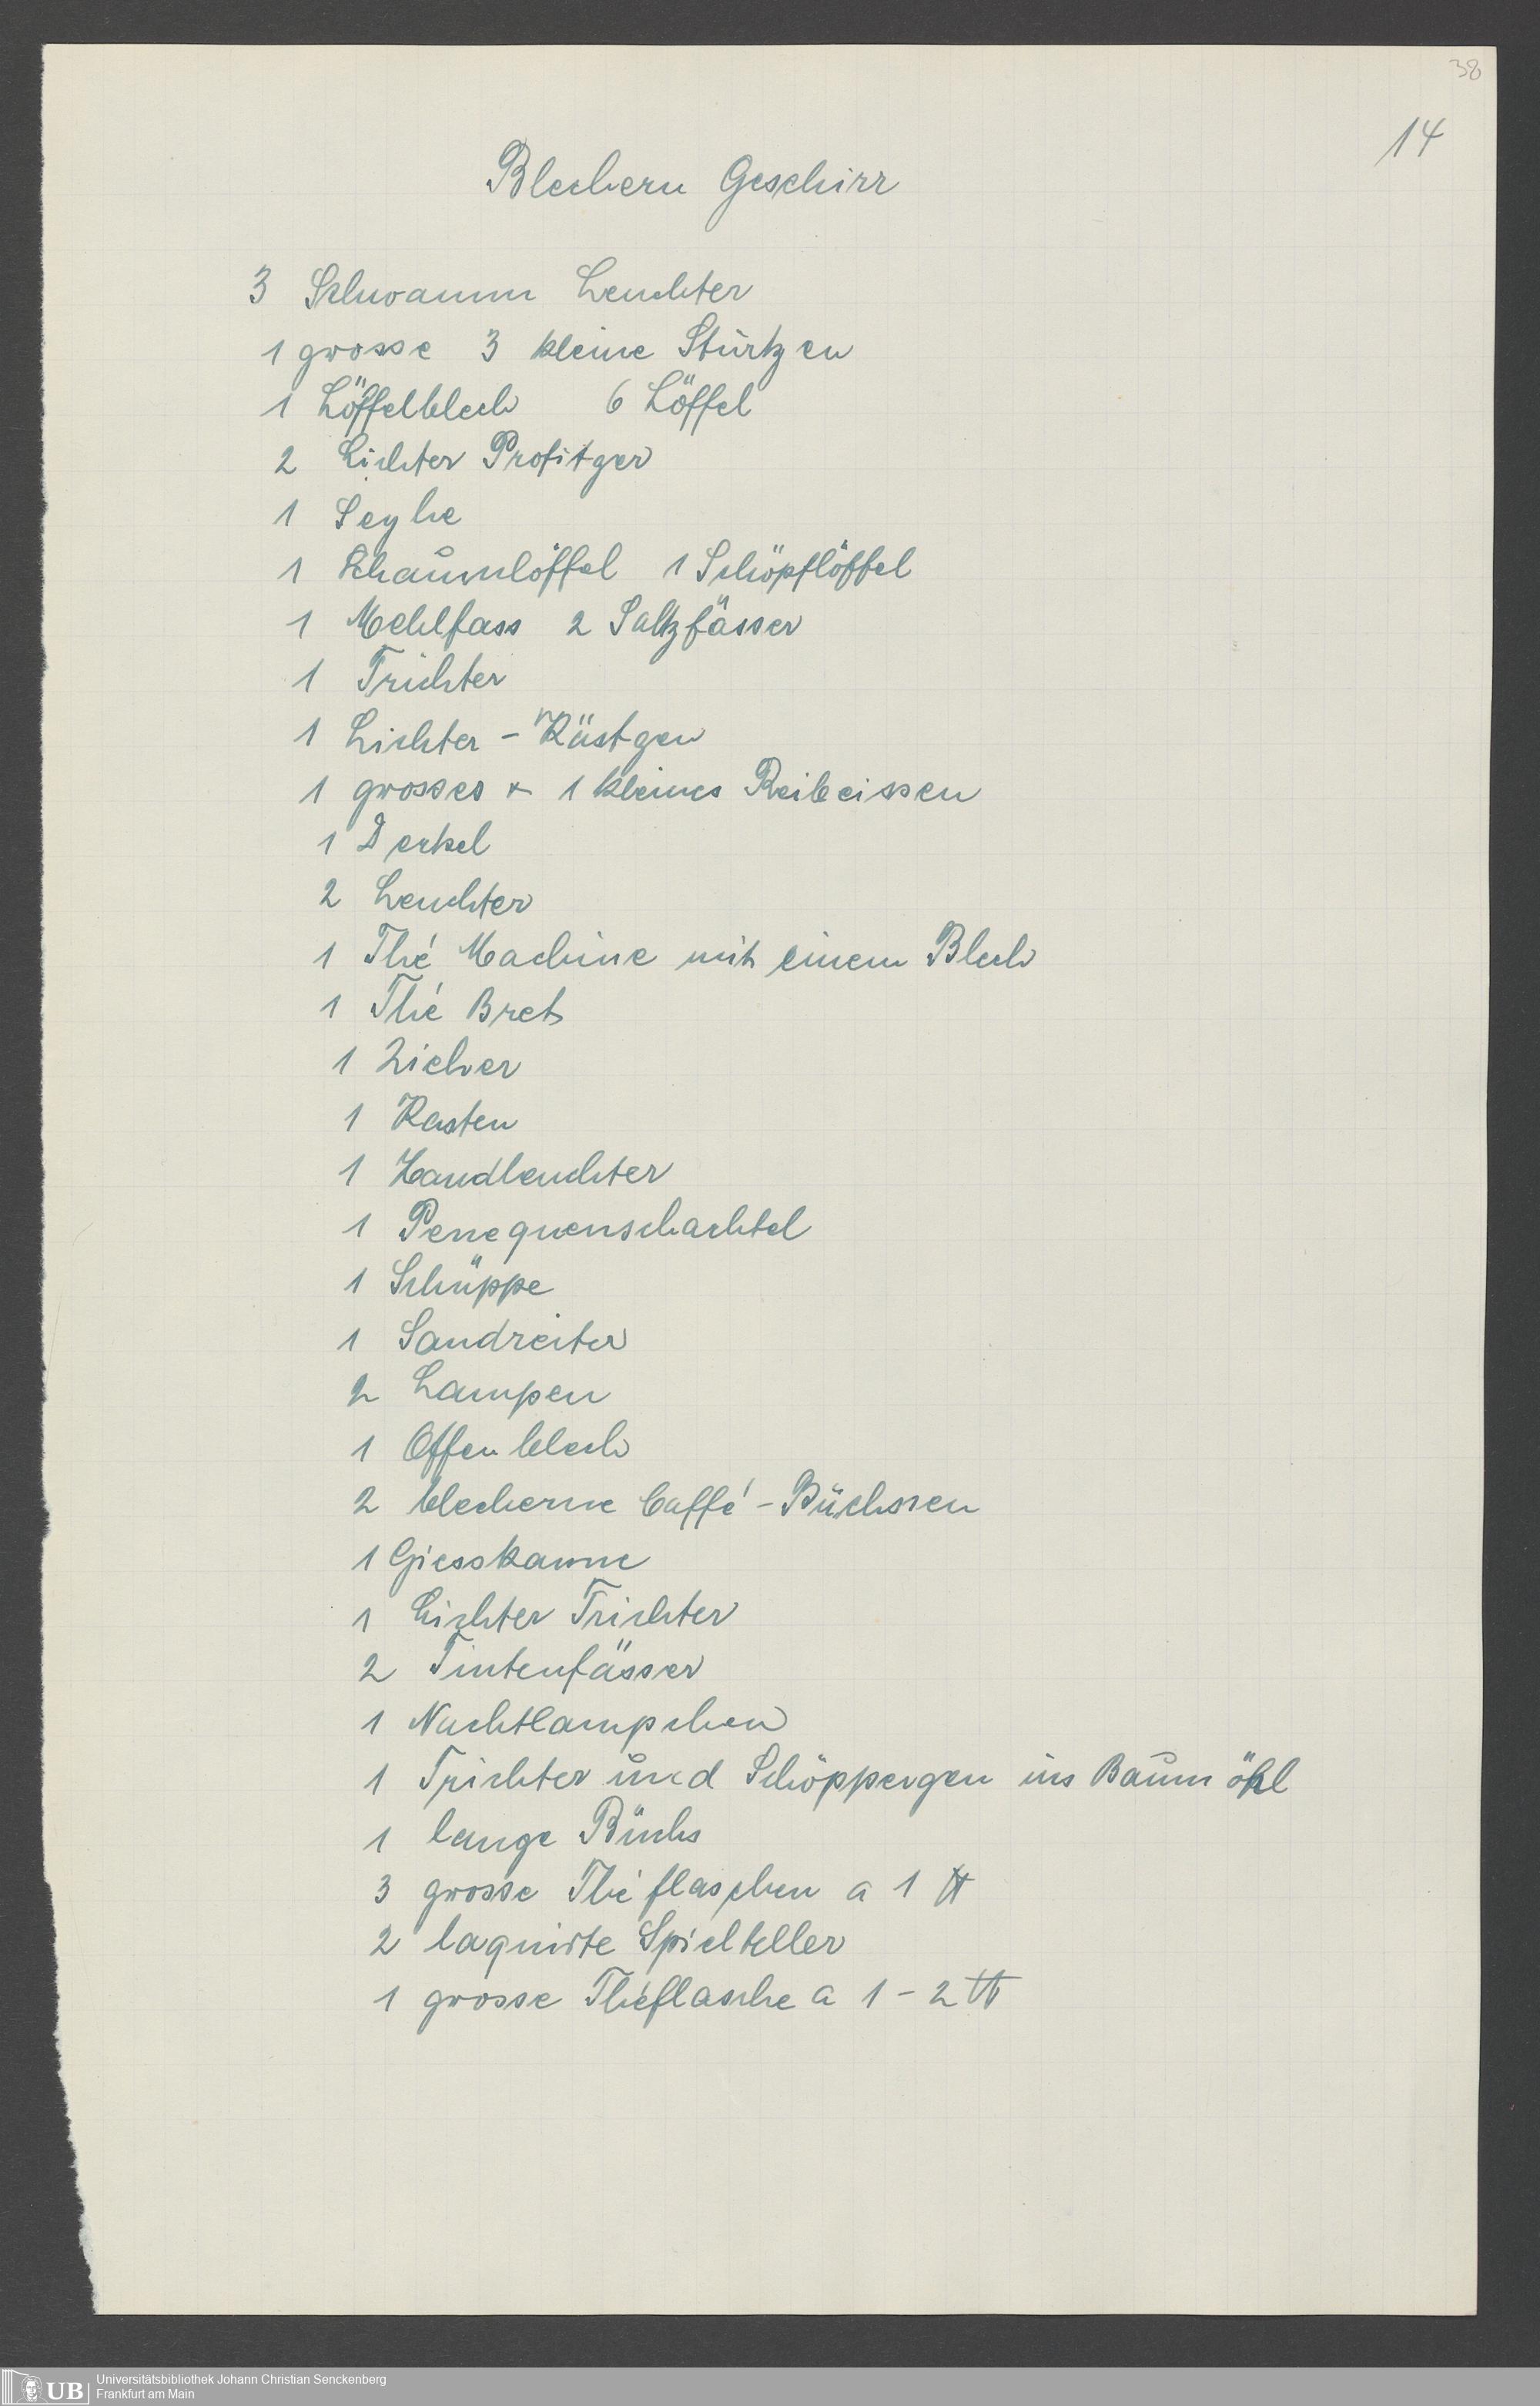 38
14
Blechern Geschirr
3 Schwamm Leuchter
1 grosse 3 kleine Stürtzen
1 Löffelblech 6 Löffel
2 Lichter Profitger
1 Seyhe
1 Schaumlöffel 1 Schöpflöffel
1 Mehlfass 2 Saltzfässer
1 Trichter
1 Lichter - Kästgen
1 grosses & 1 kleines Reibeissen
1 Derkel
2 Leuchter
1 Thé Machine mit einem Blech
1 Thé Bret
1 Zieher
1 Kasten
1 Handleuchter
1 Perrequenschachtel
1 Schüppe
1 Sandreiter
2 Lampen
1 Offenblech
2 blecherne Caffé - Büchssen
1 Giesskanne
1 Lichter Trichter
2 Tintenfässer
1 Nachtlampchen
1 Trichter und Schöppergen ins Baumöhl
1 lange Büchs
3 grosse Théflaschen a 1 ℔
2 laquirte Spielteller
1 grosse Théflasche a 1 - 2 ℔
Universitätsbibliothek Johann Christian Senckenberg
Frankfurt am Main
UB